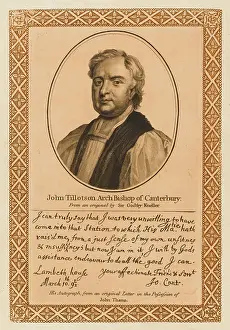 John Tillotson Arch Bishop of Canterbury.
From an original by Sir Godfrey Kneller
I can truly say that I was very unwilling to have
come into that Station to which His Ma.tie hath
rais'd me, from a just sense of my own unfitness
& insufficiency but now I am in it I will by Gods
assistance endeavour to do all the good I can.
Lambeth house your affectionate Friend & Serv.t
March 10. 9 Jo Cant.
His Autograph, from an original Letter in the Possession of
John Thane.